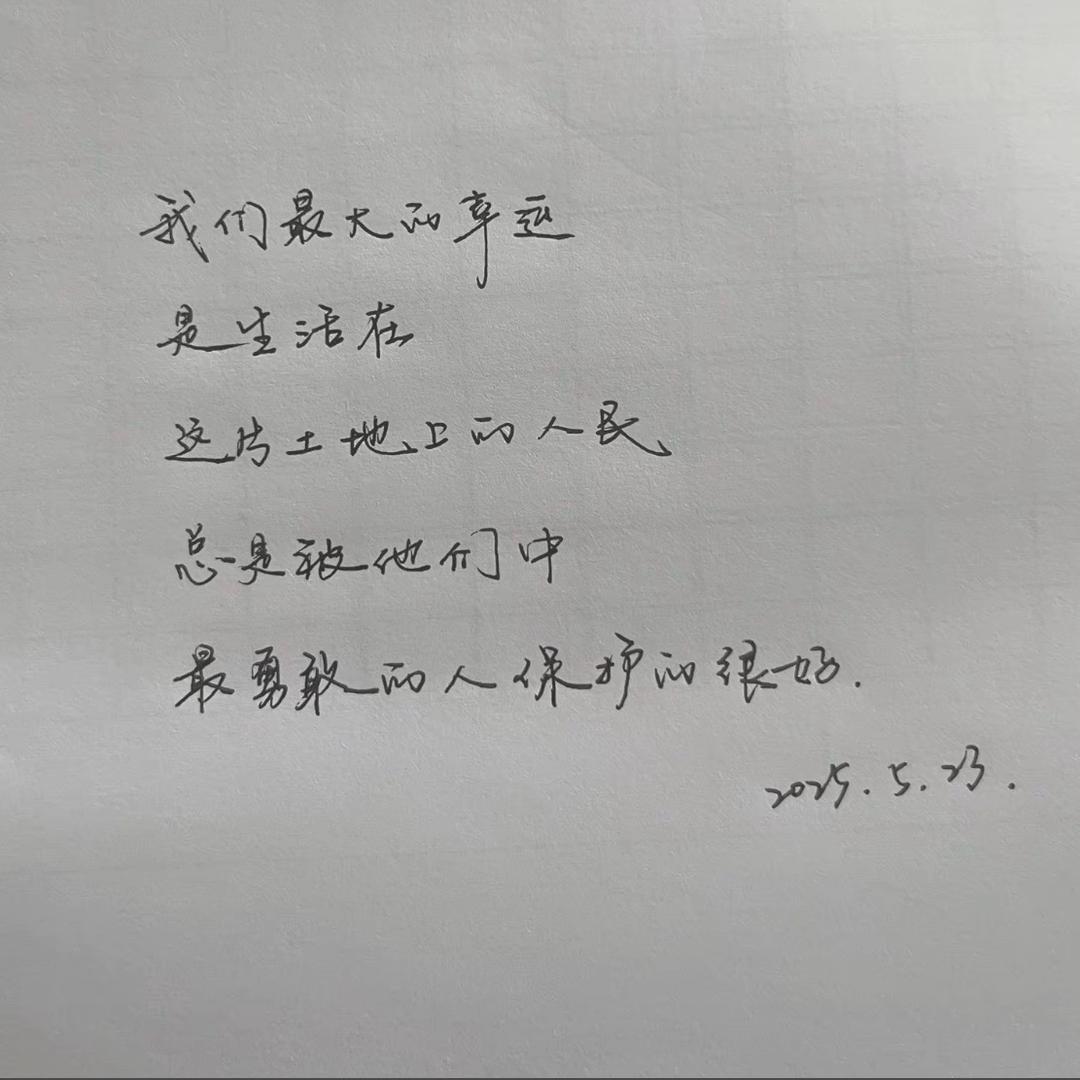 我们最大的幸运
是生活在
这片土地上的人民
总是被他们中
最勇敢的人保护的很好.
2025.5.23.